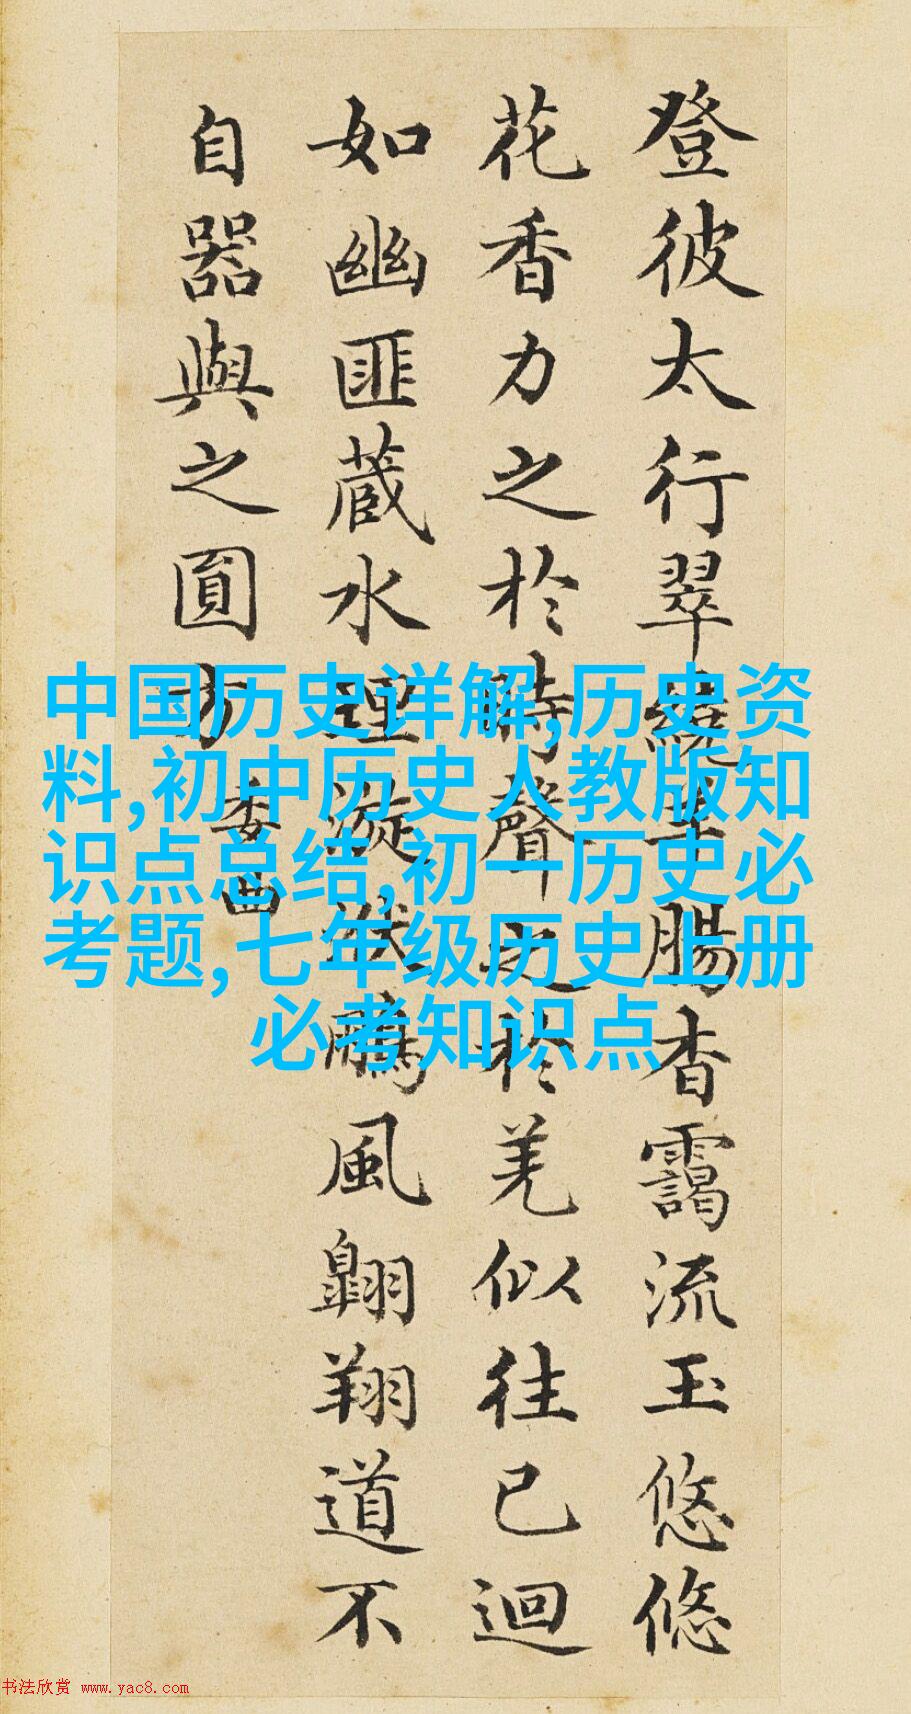 登彼太行翠繞羊腸杳靄流玉悠悠
花香力之於時聲之於羌似往已迴
如幽匪蔵水理漩洑鵬風翺翔道不
自器與之圓方
委曲
中国历史详解,历史资
料,初中历史人教版知
识点总结,初一历史必
考题,七年级历史上册
必考知识点
书法欣赏 www.yac8.com